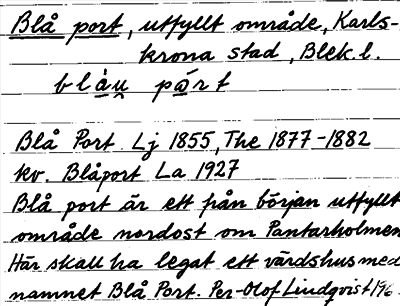 Blå port, utfyllt område, Karls-
krona stad, Blek. l.
blå̀u̯ pǿrt
Blå Port Lj 1855, The 1877-1882
kv. Blåport La 1927
Blå port är ett från början utfyllt
område nordost om Pantarholmen
Här skall ha legat ett värdshus med
namnet Blå Port. Per-Olof Lindqvist